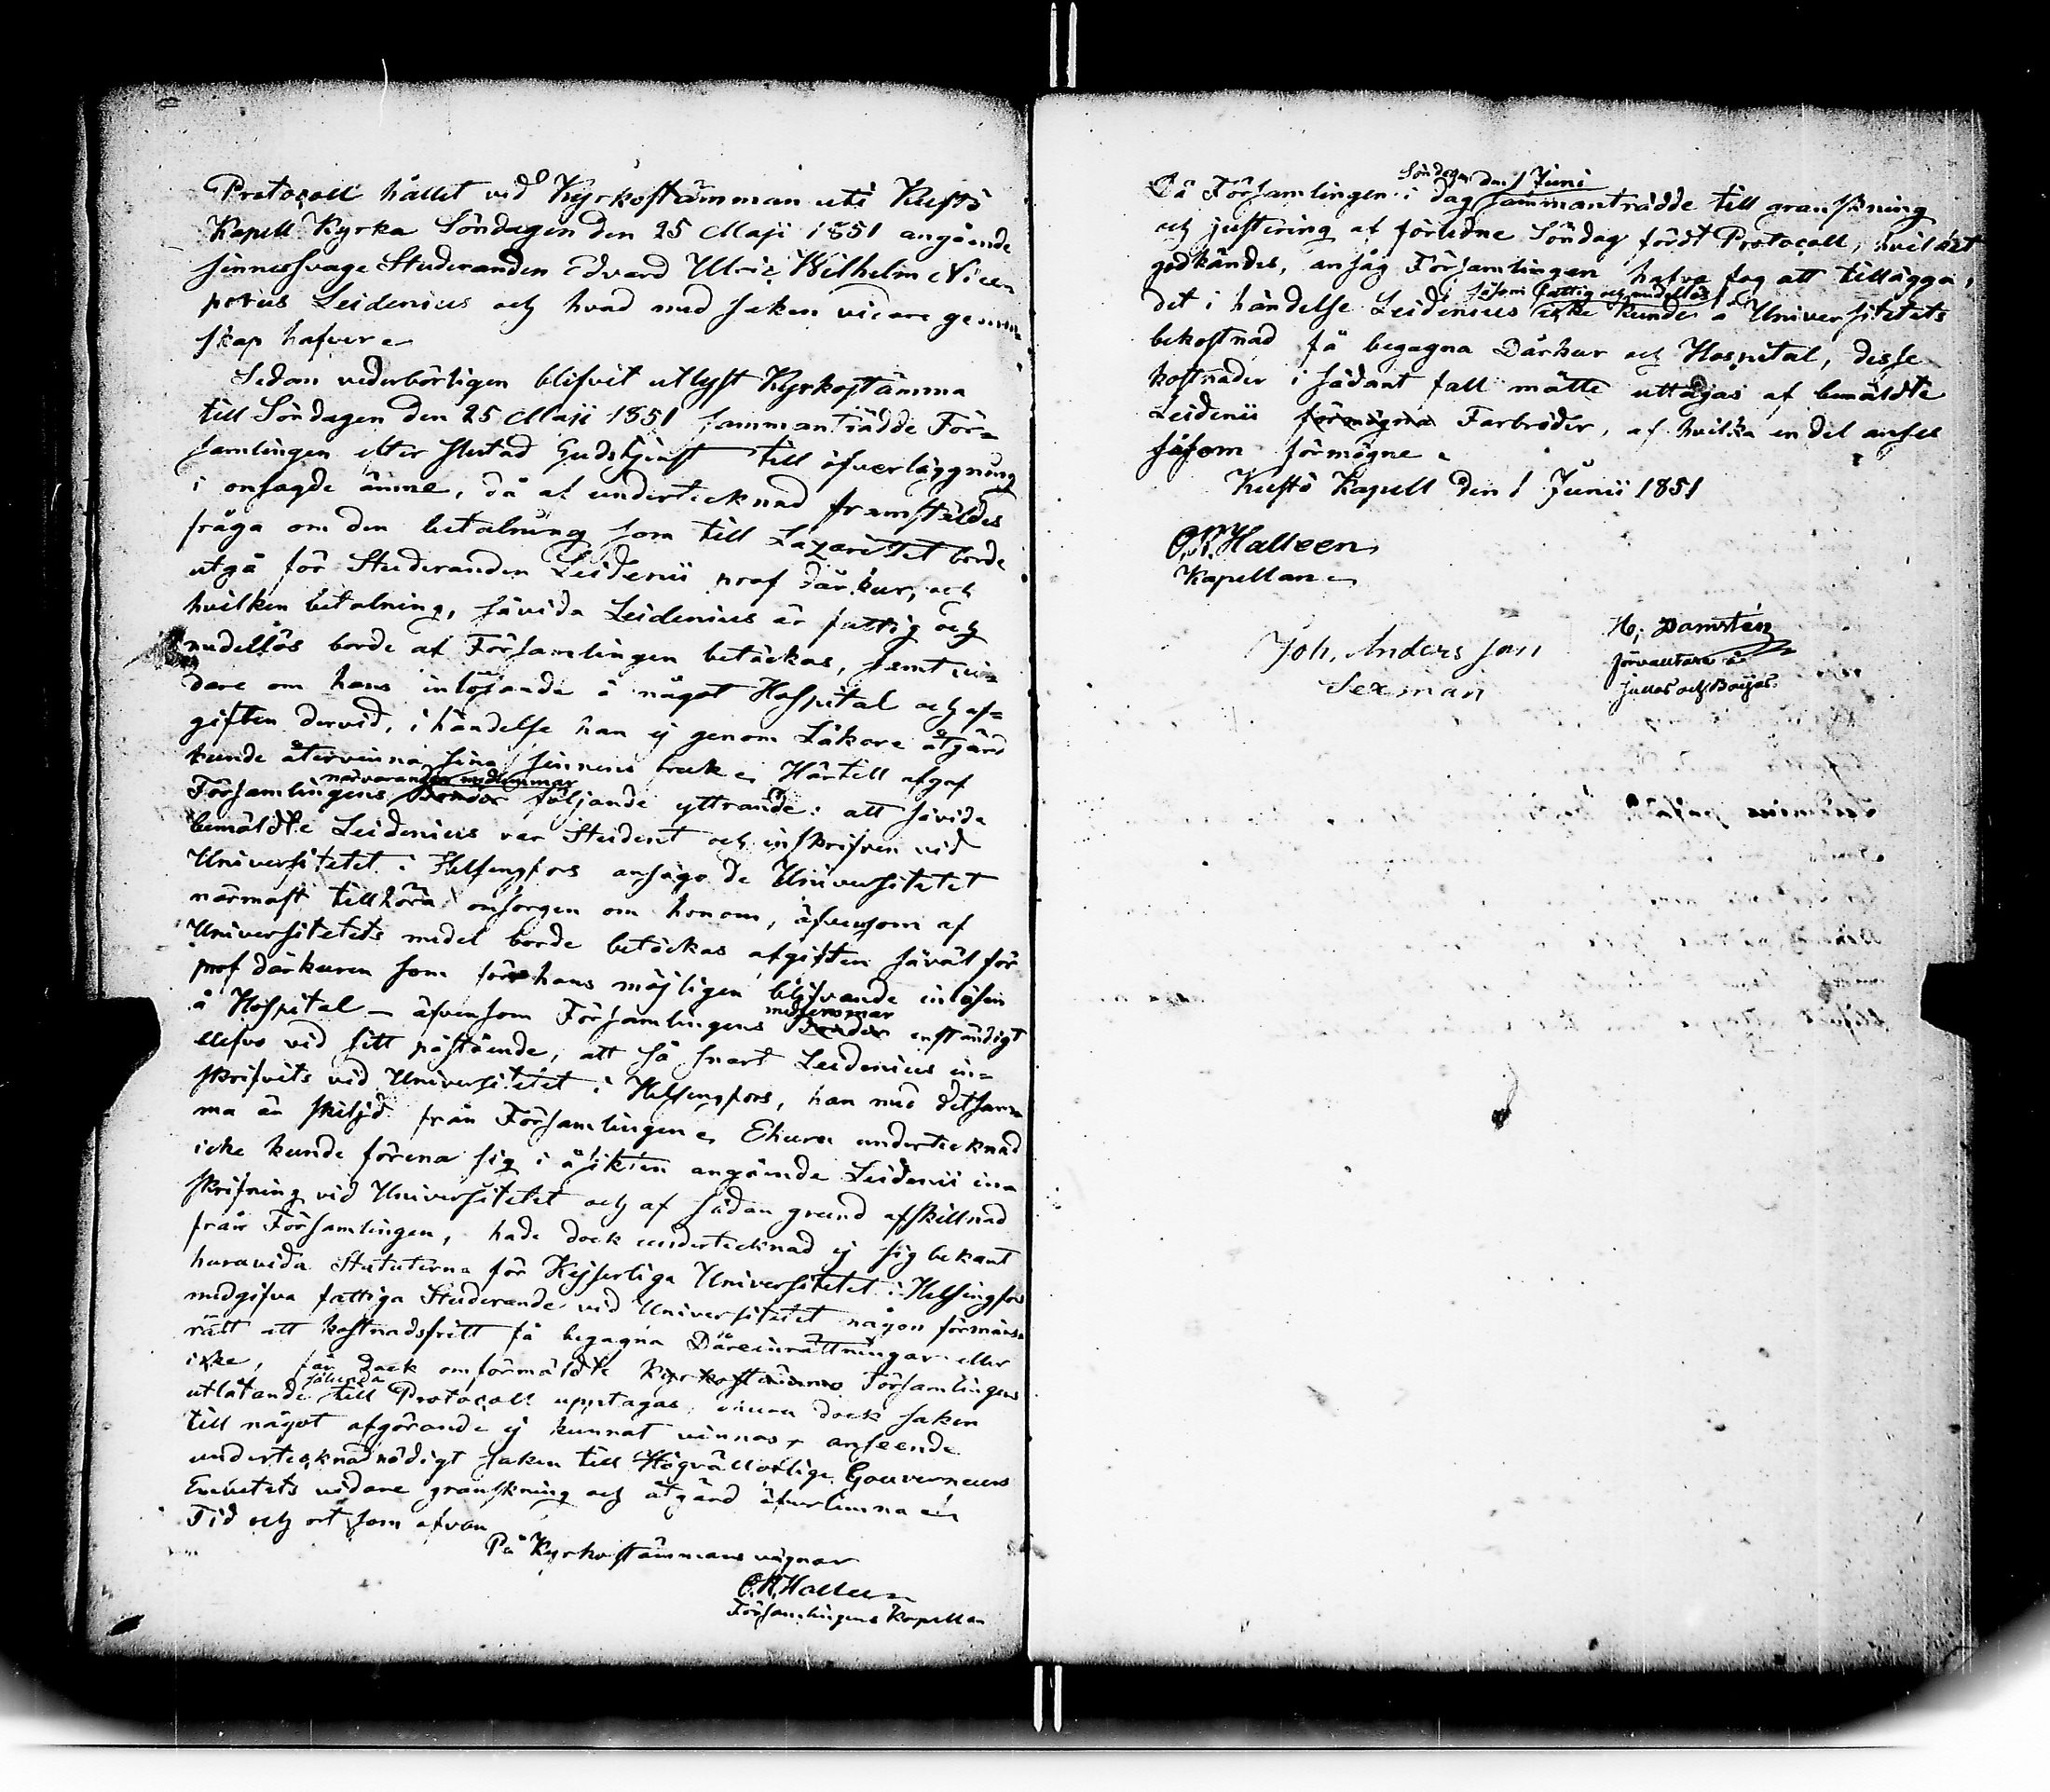 Protocoll hållet vid Kyrkostämman uti Kustö
Kapell Kyrka Söndagen den 25 Maji 1851 angående
sinnessvage Studeranden Edvard Ulric Wilhelm Nicen
porus Leidenius och hvad med saken vidare gemen-
skap hafver
Sedan vederbörligen blifvit utlyst Kyrkostämma
till Söndagen den 25 Maji 1851 sammanträdde För-
samlingen efter slutad Gudstjenst till öfverläggning
i onsagde ämne, då af undertecknad framstäldes
fråga om den betalning som till Lazarettet borde
utgå för Studeranden Leidenii prof dårkur, och
hvilken betalning, såvida Leidenius är fattig och
medellös borde af Församlingen betäckas, samt vi-
dare om hans inlösande å något Hospital och af-
giften dervid, i händelse han ej genom Läkare åtgärd
kunde återvinna sina sinnens bruk. Härtill afgaf
närvarande medlemmar
Församlingens följande yttrande: att såvida
bemäldte Leidenius var Student och inskrifven vid
Universitetet i Helsingfors ansågo de Universitetet
närmast tillhöra omsorgen om honom, äfvensom af
Universitetets medel borde betäckas afgiften såväl för
prof dårkuren som för hans möjligen blifvande inlösen
å Hospital – äfvensom Församlingens medlemmar enständigt
blefvo vid sitt påstående, att så snart Leidenius in-
skrifvits vid Universitetet i Helsingfors, han med detsam-
ma är skiljd från Församlingen. Ehuru undertecknad
icke kunde förena sig i åsikten angående Leidenii in-
skrifning vid Universitetet och af sådan grund afskillnad
från Församlingen, hade dock undertecknad ej sig bekant
huruvida Statuterna för Kejserliga Universitetet i Helsingfors
medgifva fattiga Studerande vid Universitetet någon förmåns-
rätt att kostnadsfritt få begagna Dåreinrättningar eller
icke, får dock omförmäldte Kyrkostämmo Församlingens
utlåtande sålunda till Protocoll upptagas, ehuru dock saken
till något afgörande ej kunnat vinnas, anseende
undertecknad nödigt saken till Högvällovlige Gouverneurs
Embetets vidare granskning och åtgärd öfverlemna
Tid och ort som ofvan
På Kyrkostämmans vägnar
C.R. Halleen
Församlingens Kapellan
Söndagen den 1 Juni
Då Församlingen i dag sammanträdde till granskning
och justering af förledne Söndag fördt Protocoll, hvilket
godkändes, ansåg Församlingen hafva sog att tillägga,
såsom fattig och medellös
det i händelse Leidenius icke kunde å Universitetets
bekostnad få begagna Dårkur och Hospital, desse
kostnader i sådant fall måtte uttagas af bemäldte
Leidenii förmögna Farbröder, af hvilka en del anses
såsom förmögne.
Kustö Kapell den 1 Junii 1851
C.R. Halleen
Kapellan
Joh. Andersson
Sexman
H. Damstén
förvaltare å